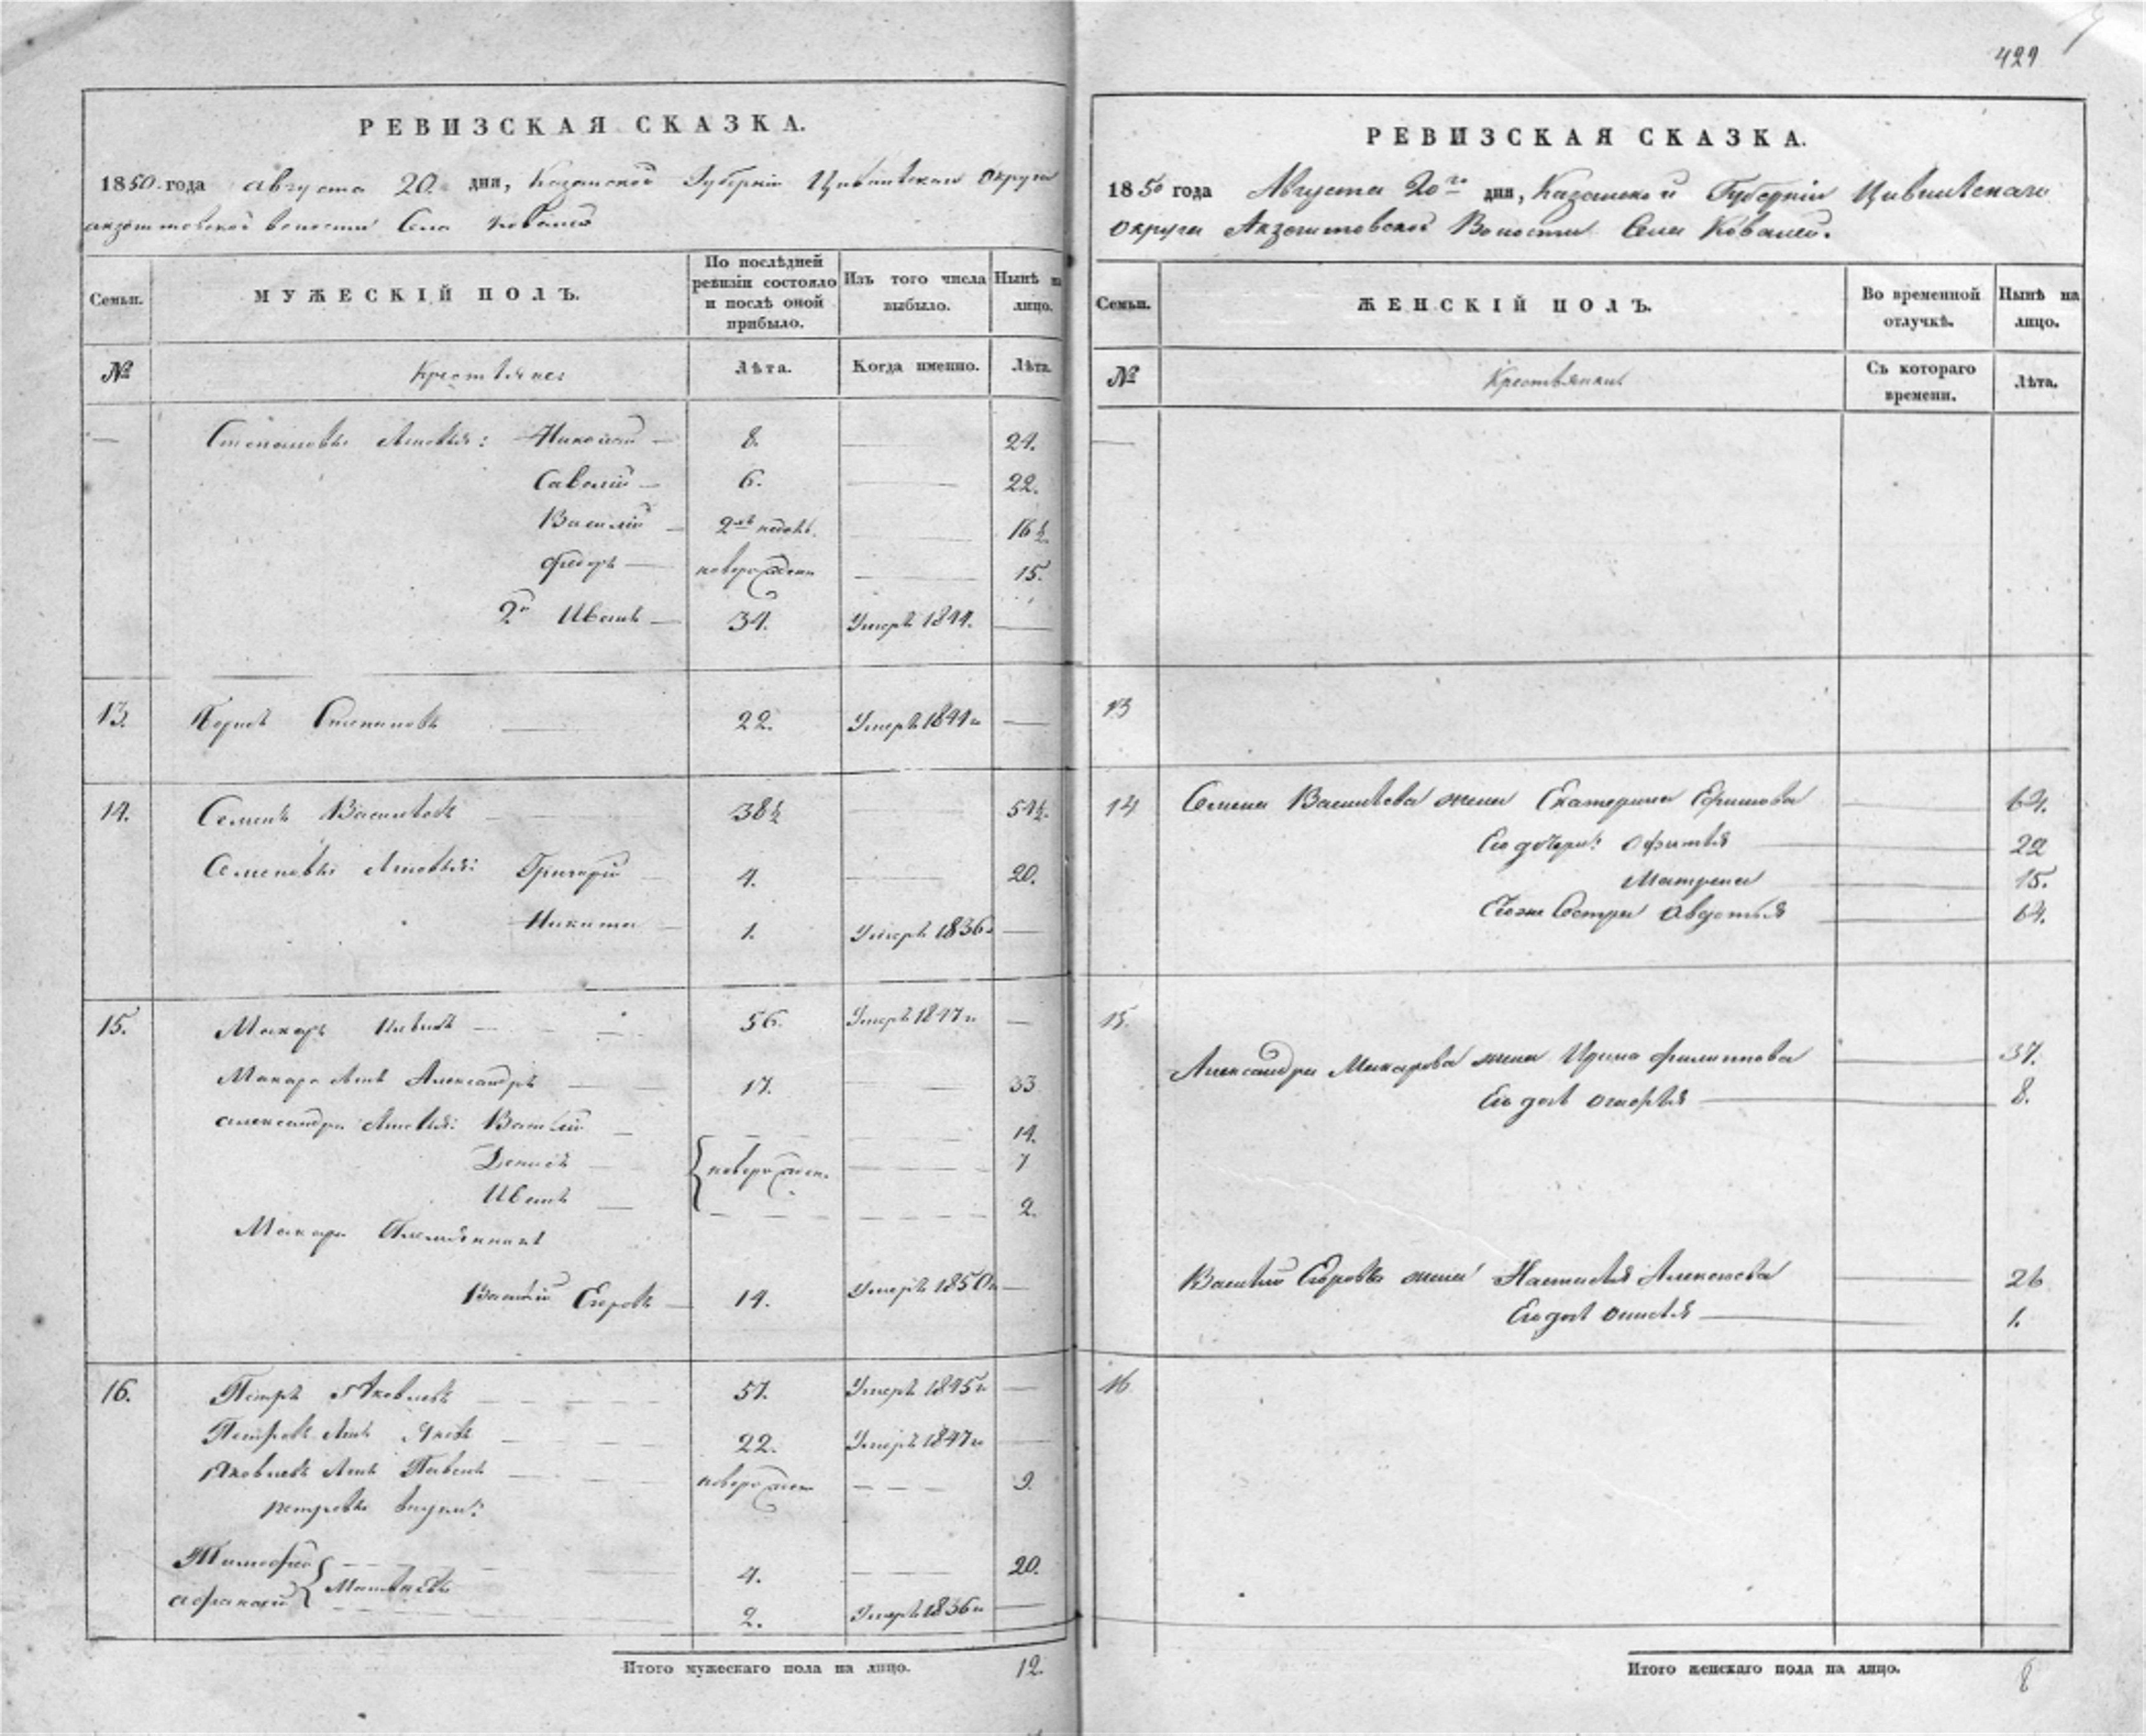 429
РЕВИЗСКАЯ СКАЗКА.
1850 года августа 20 дня, Казанской Губернiи Цивильскаго Округа
акзегитовской волости Села Ковалей
Семьи.
МУЖЕСКIЙ ПОЛЪ.
По послѣдней ревизiи состояло и послѣ оной прибыло.
Изъ того числа выбыло.
Нынѣ на лицо.
№
Крестьяне:
Лѣта.
Когда именно.
Лѣта.
— Степановы сыновья: Николай — 8. 24.
Савелiй — 6. 22.
Василiй — 2хъ недѣль. 16½.
Федоръ — новорожден 15.
2й Иванъ — 34. Умеръ 1844.
13. Степановъ 22. Умеръ 1844
14. Семенъ Васильевъ 38½ 54½.
Семеновы сыновья: Григорiй 4. 20.
Никита 1. Умеръ 1836
15. Макаръ 56. Умеръ 1847
Макара сынъ Александръ 17. 33
Александра сыновья: Василiй 14.
Денисъ новорожден. 7
Иванъ 2.
Макара Племянникъ
Василiй Егоровъ 14. Умеръ 1850
16. Петръ Яковлевъ 51. Умеръ 1845
Петровъ сынъ Яковъ 22. Умеръ 1847
Яковлевъ сынъ Павелъ новорожден 9.
Петровы внуки:
Тимофей 4. 20.
Афанасiй Матвѣевы 2. Умеръ 1836
Итого мужескаго пола на лицо. 12.
РЕВИЗСКАЯ СКАЗКА.
1850 года Августа 20го дня, Казанской Губернiи Цивильскаго
округа Акзегитовской Волости Села Ковалей.
Семьи.
ЖЕНСКIЙ ПОЛЪ.
Во временной отлучкѣ.
Нынѣ на лицо.
№
Крестьянки
Съ котораго времени.
Лѣта.
13
14 Семена Васильева жена Екатерина Ефимова 64.
Его дочери: Офимья 22
Матрена 15.
Его же Сестра Авдотья 64.
15. Александра Макарова жена Ирина Филиппова 37.
Его дочь 8.
Василiй Егорова жена Настасья Алексеева 26
Его дочь Анисья 1.
16
Итого женскаго пола на лицо. 8